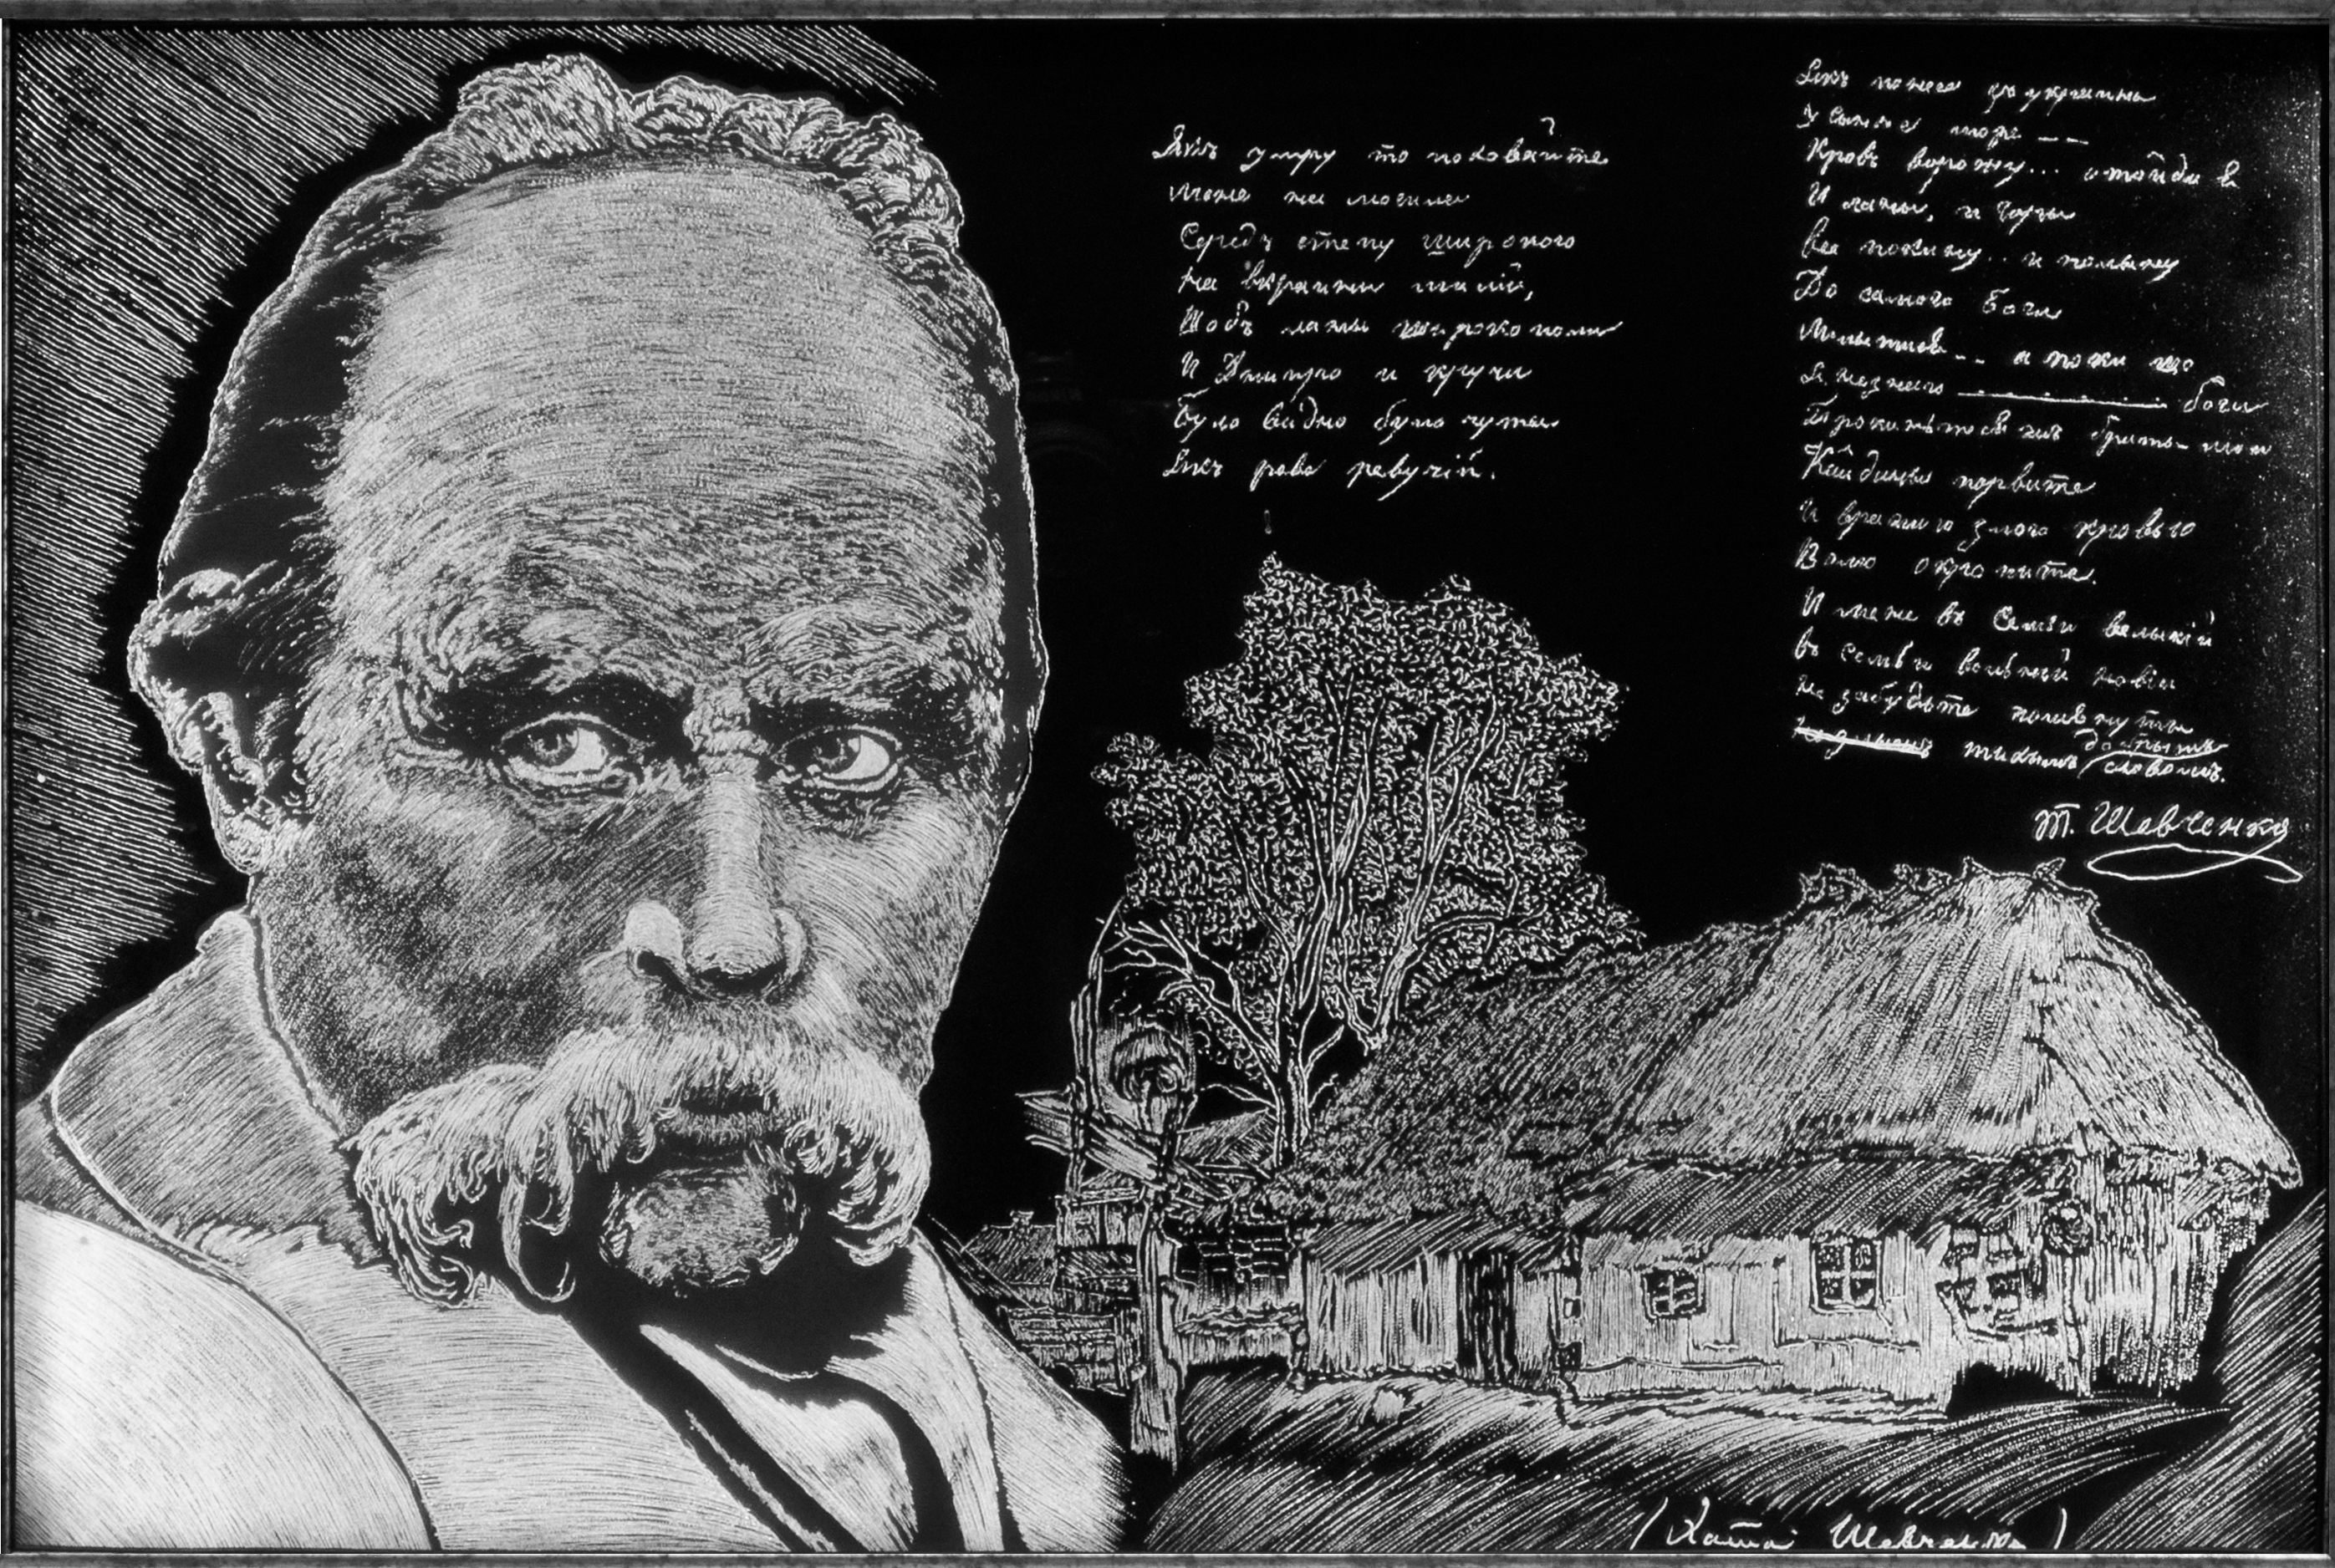 Якъ умру то поховайте
Мене на могили
Середъ степу широкого
На вкраини милій,
Щобъ ланы широкополи
И Днипро и кручи
Було видно було чуты
Якъ реве ревучій.
Якъ понесе зъ украины
У синее море
Кровъ ворожу... отойди я
И ланы, и горы
Все покину.. и полыну
До самого Бога
Молытися.. а поки що
Я незнаю бога
Поховайте та вставайте
Кайданы порвите
И вражою злою кровью
Волю окропите.
И мене въ семьи великій
въ семьи вольній новій
Не забудьте помянуты
тихимъ
словомъ.
Т. Шевченко
(Хата Шевченка)